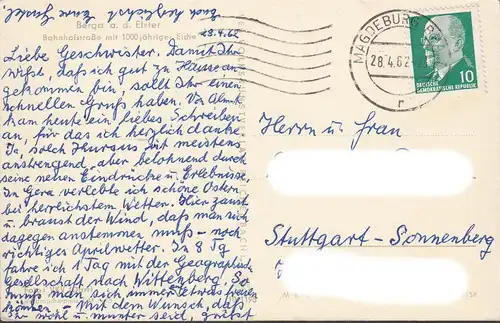 Berga a. d. Elster
Bahnhofstraße mit 1000jähriger Eiche
28.4.62
Liebe Geschwister. Damit Ihr
wißt, daß ich gut zu Hause an-
gekommen bin, sollt Ihr einen
schnellen Gruß haben. Von
kam heute ein liebes Schreiben
an, für das ich herzlich danke.
Ja, solch Kursus ist meistens
anstrengend, aber belohnend durch
seine neuen Eindrücke u. Erlebnisse.
In Gera verlebte ich schöne Ostern
bei herrlichstem Wetter. Hier zaust
u. braust der Wind, daß man sich
dagegen anstemmen muß - noch
richtiges Aprilwetter. In 8 Tg
fahre ich 1 Tag mit der Geograph.
Gesellschaft nach Wittenberg. So
muß man sich immer etwas
können. - Mit dem Wunsch, daß
Ihr wohl u. munter seid, grüßt
MAGDEBURG
28.4.62
r
DEUTSCHE
DEMOKRATISCHE REPUBLIK
10
Herrn u. Frau
Stuttgart-Sonnenberg